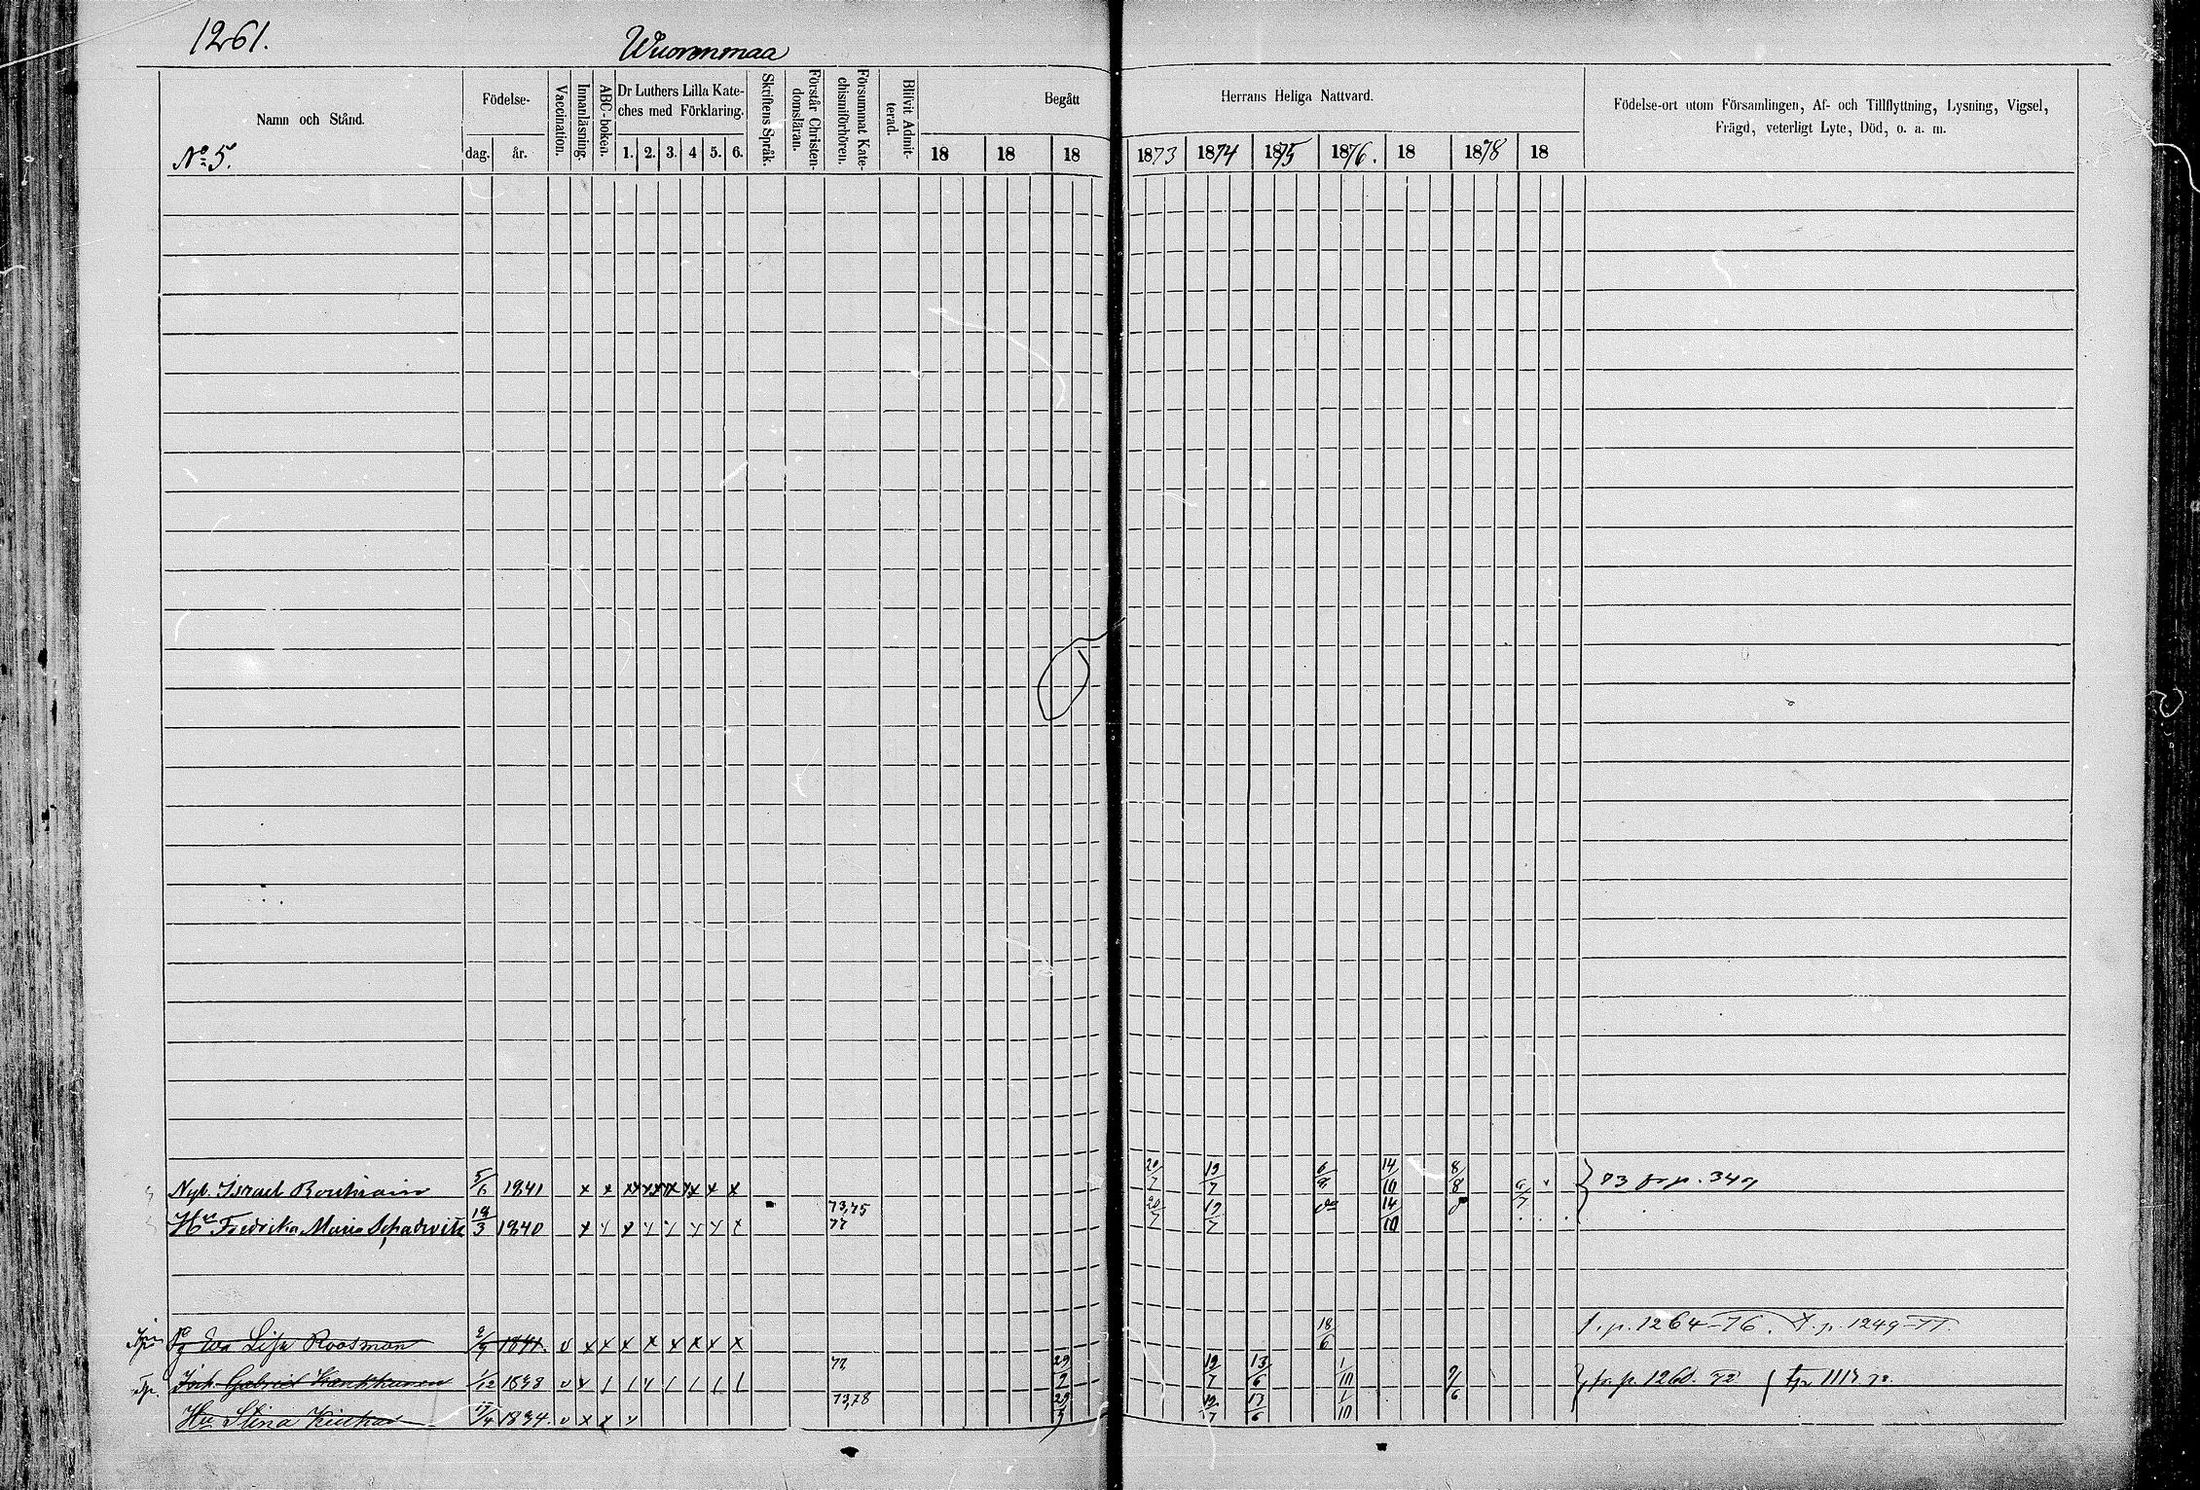 1261.
Wuorenmaa
Namn och Stånd.
No 5.
Födelse-
dag.
år.
Vaccination.
Innanläsning.
ABC-boken.
Dr Luthers Lilla Kate-
ches med Förklaring.
1. 2. 3. 4 5. 6.
Skriftens Språk.
Förstår Christen-
domsläran.
Försummat Kate-
chismiförhören.
Blifvit Admit-
terad.
Begått
Herrans Heliga Nattvard.
18 18 18 1873 1874 1875 1876. 18 1878 18
Födelse-ort utom Församlingen, Af- och Tillflyttning, Lysning, Vigsel,
Frägd, veterligt Lyte, Död, o. a. m.
Israel 5/6 1841 x x x x x x x x 20/7 19/7 14/10 8/8
Hu Fredrika Maria 18/3 1840 73,75 77 20/7 19/7 14/10
Eva Lisa Roosman 1841. v x x x x x x x x 18/6 p. 1264-76. p. 1249-77
Joh. Gabriel 1/12 1838 77 19/7 13/6 1/10 fr. p. 1260. 72
Hu Stina 17/4 1834. v x x 73,78 19/7 13/6 1/10